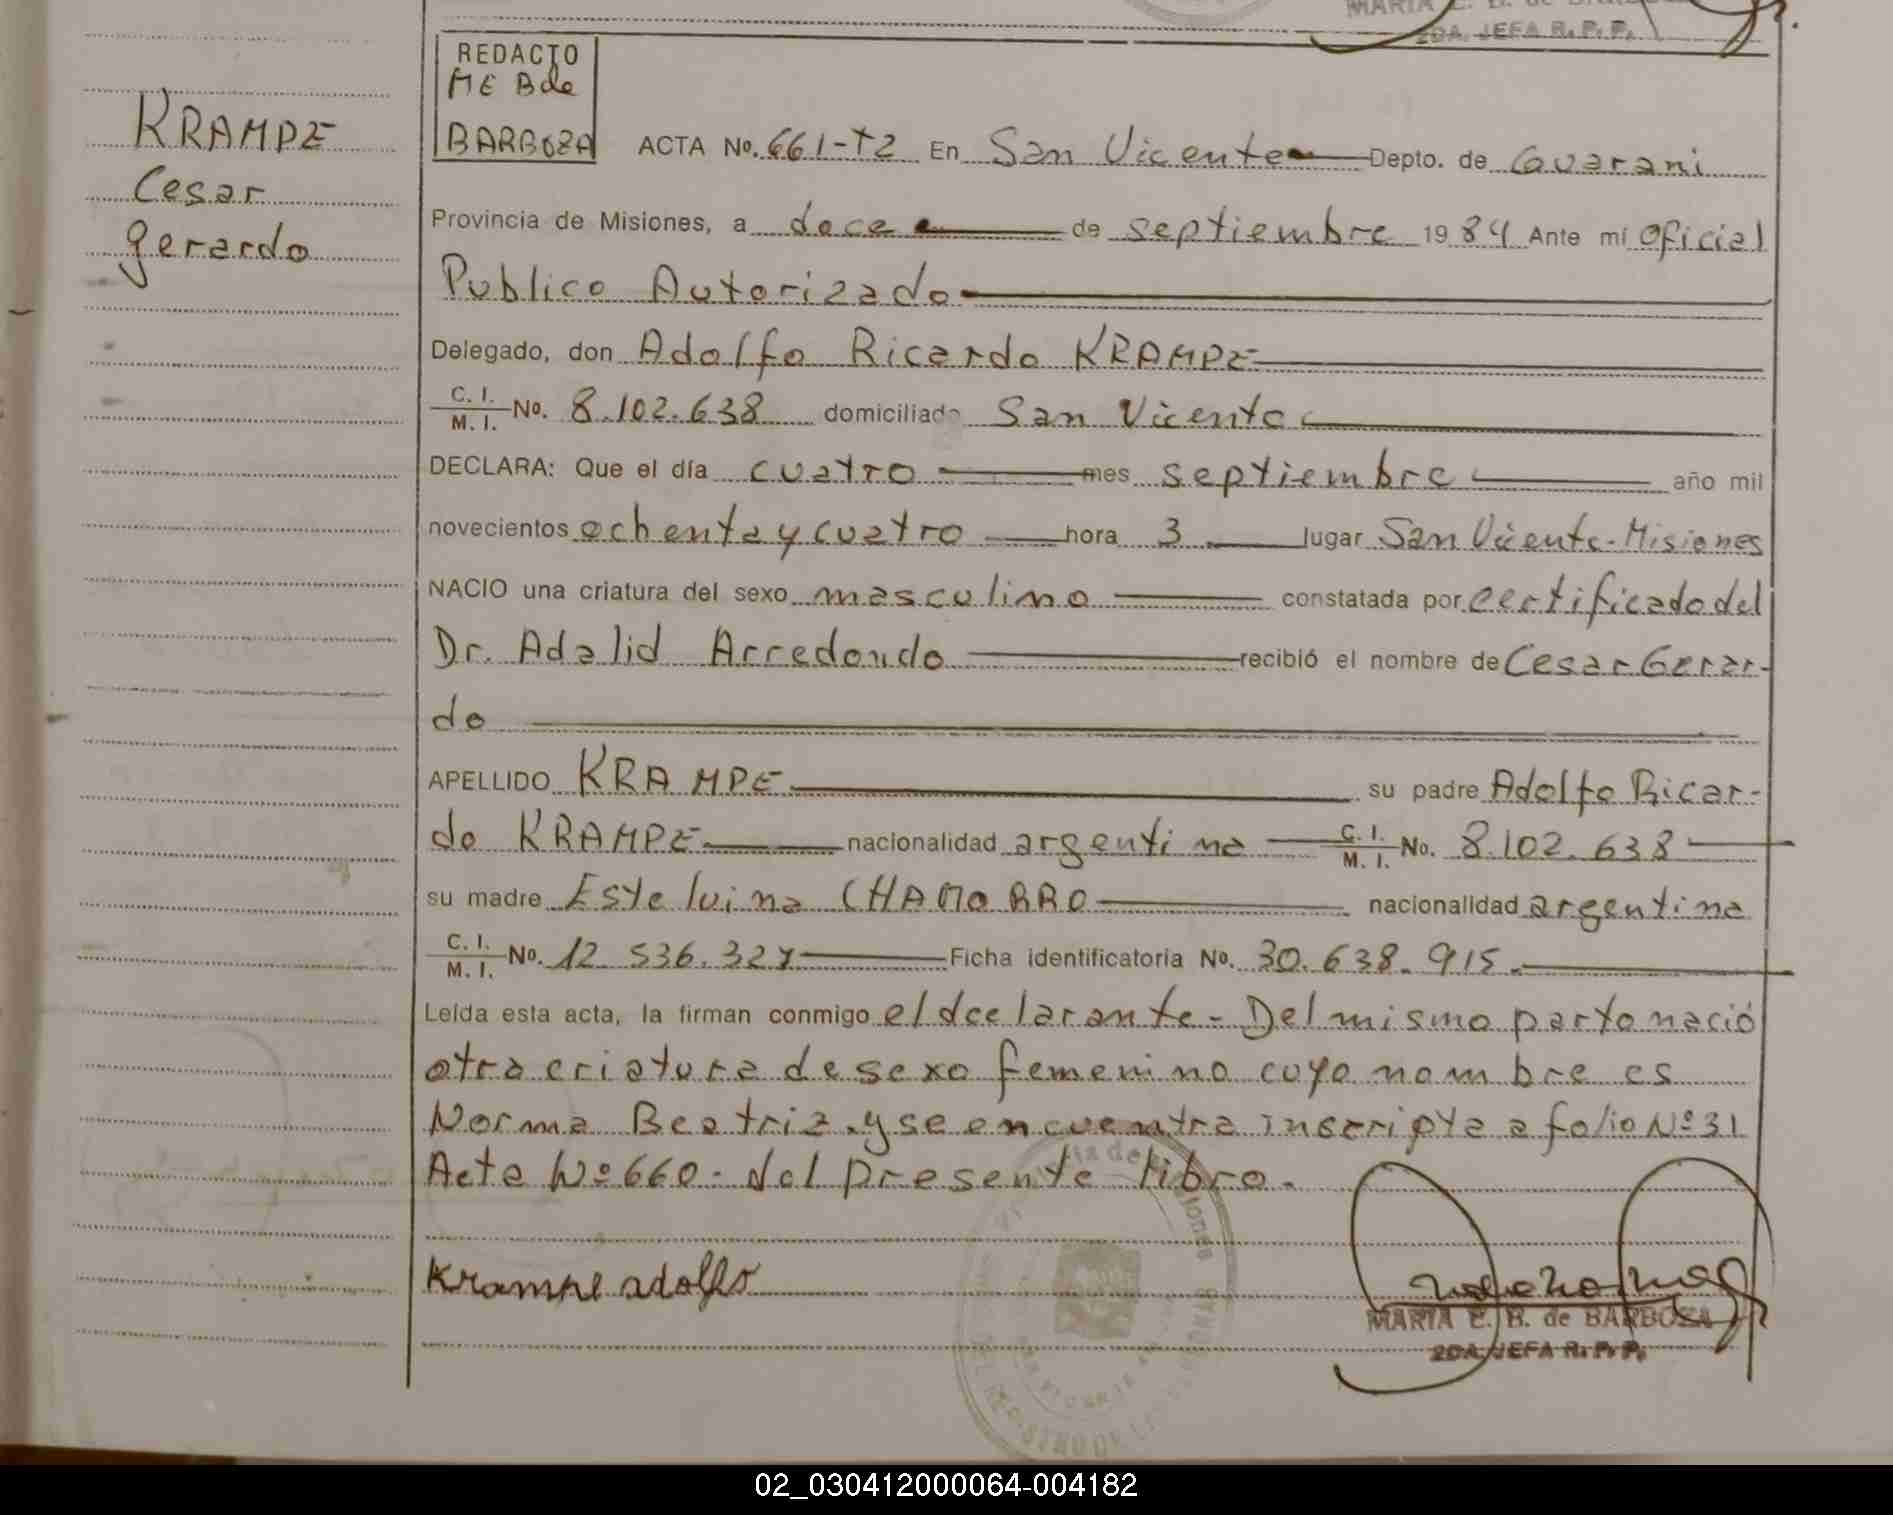 MARIA E. B. de
2DA. JEFA R. P. P.
KRAMPE
Cesar
Gerardo
REDACTO
ME B de
BARBOZA
ACTA No. 661-T2 En San Vicente Depto. de Guarani
Provincia de Misiones, a doce de septiembre 1984 Ante mí Oficial
Publico Autorizado
Delegado, don Adolfo Ricardo KRAMPE
C. I. / M. I. No. 8.102.638 domiciliado San Vicente
DECLARA: Que el día cuatro mes septiembre año mil
novecientos ochenta y cuatro hora 3 lugar San Vicente-Misiones
NACIO una criatura del sexo masculino constatada por certificado del
Dr. Adalid Arredondo recibió el nombre de Cesar Gerar-
do
APELLIDO KRAMPE su padre Adolfo Ricar-
do KRAMPE nacionalidad argentina C. I. / M. I. No. 8.102.638
su madre Estelvina CHAMORRO nacionalidad argentina
C. I. / M. I. No. 12.536.327 Ficha identificatoria No. 30.638.915.
Leída esta acta, la firman conmigo el declarante- Del mismo parto nació
otra criatura de sexo femenino cuyo nombre es
Norma Beatriz y se encuentra inscripta a folio Nº 31
Acta Nº 660- del presente libro.
Krampe adolfo
MARIA E. B. de BARBOSA
2DA. JEFA R. P. P.
02_030412000064-004182